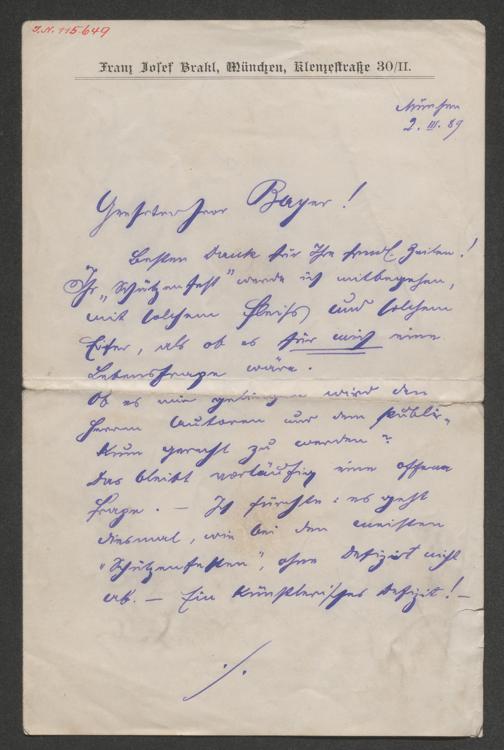 I.N. 115.649
Franz Josef Brakl, München, Klenzestraße 30/II.
München
2. III. 89
Geehrter Herr Bayer!
Besten Dank für Ihre frndl. Zeilen!
Ihr „Schützenfest" werde ich mitbegehen,
mit solchem Fleiss und solchem
Eifer, als ob es für mich eine
Lebensfrage wäre.
Ob es mir gelingen wird den
Herrn Autoren und dem Publi-
kum gerecht zu werden?
Das bleibt vorläufig eine offene
Frage. — Ich fürchte: es geht
diesmal, wie bei den meisten
"Schützenfesten", ohne Defizit nicht
ab. — Ein künstlerisches Defizit! —
./.